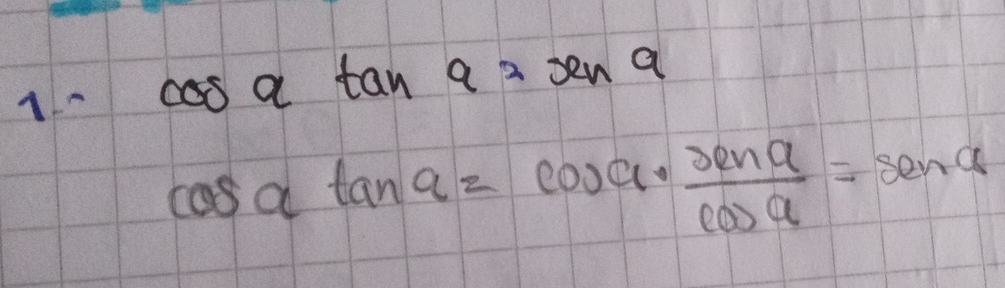 1.- cos a tan a = sen a
cos a tan a = cos a · sen a / cos a = sen a